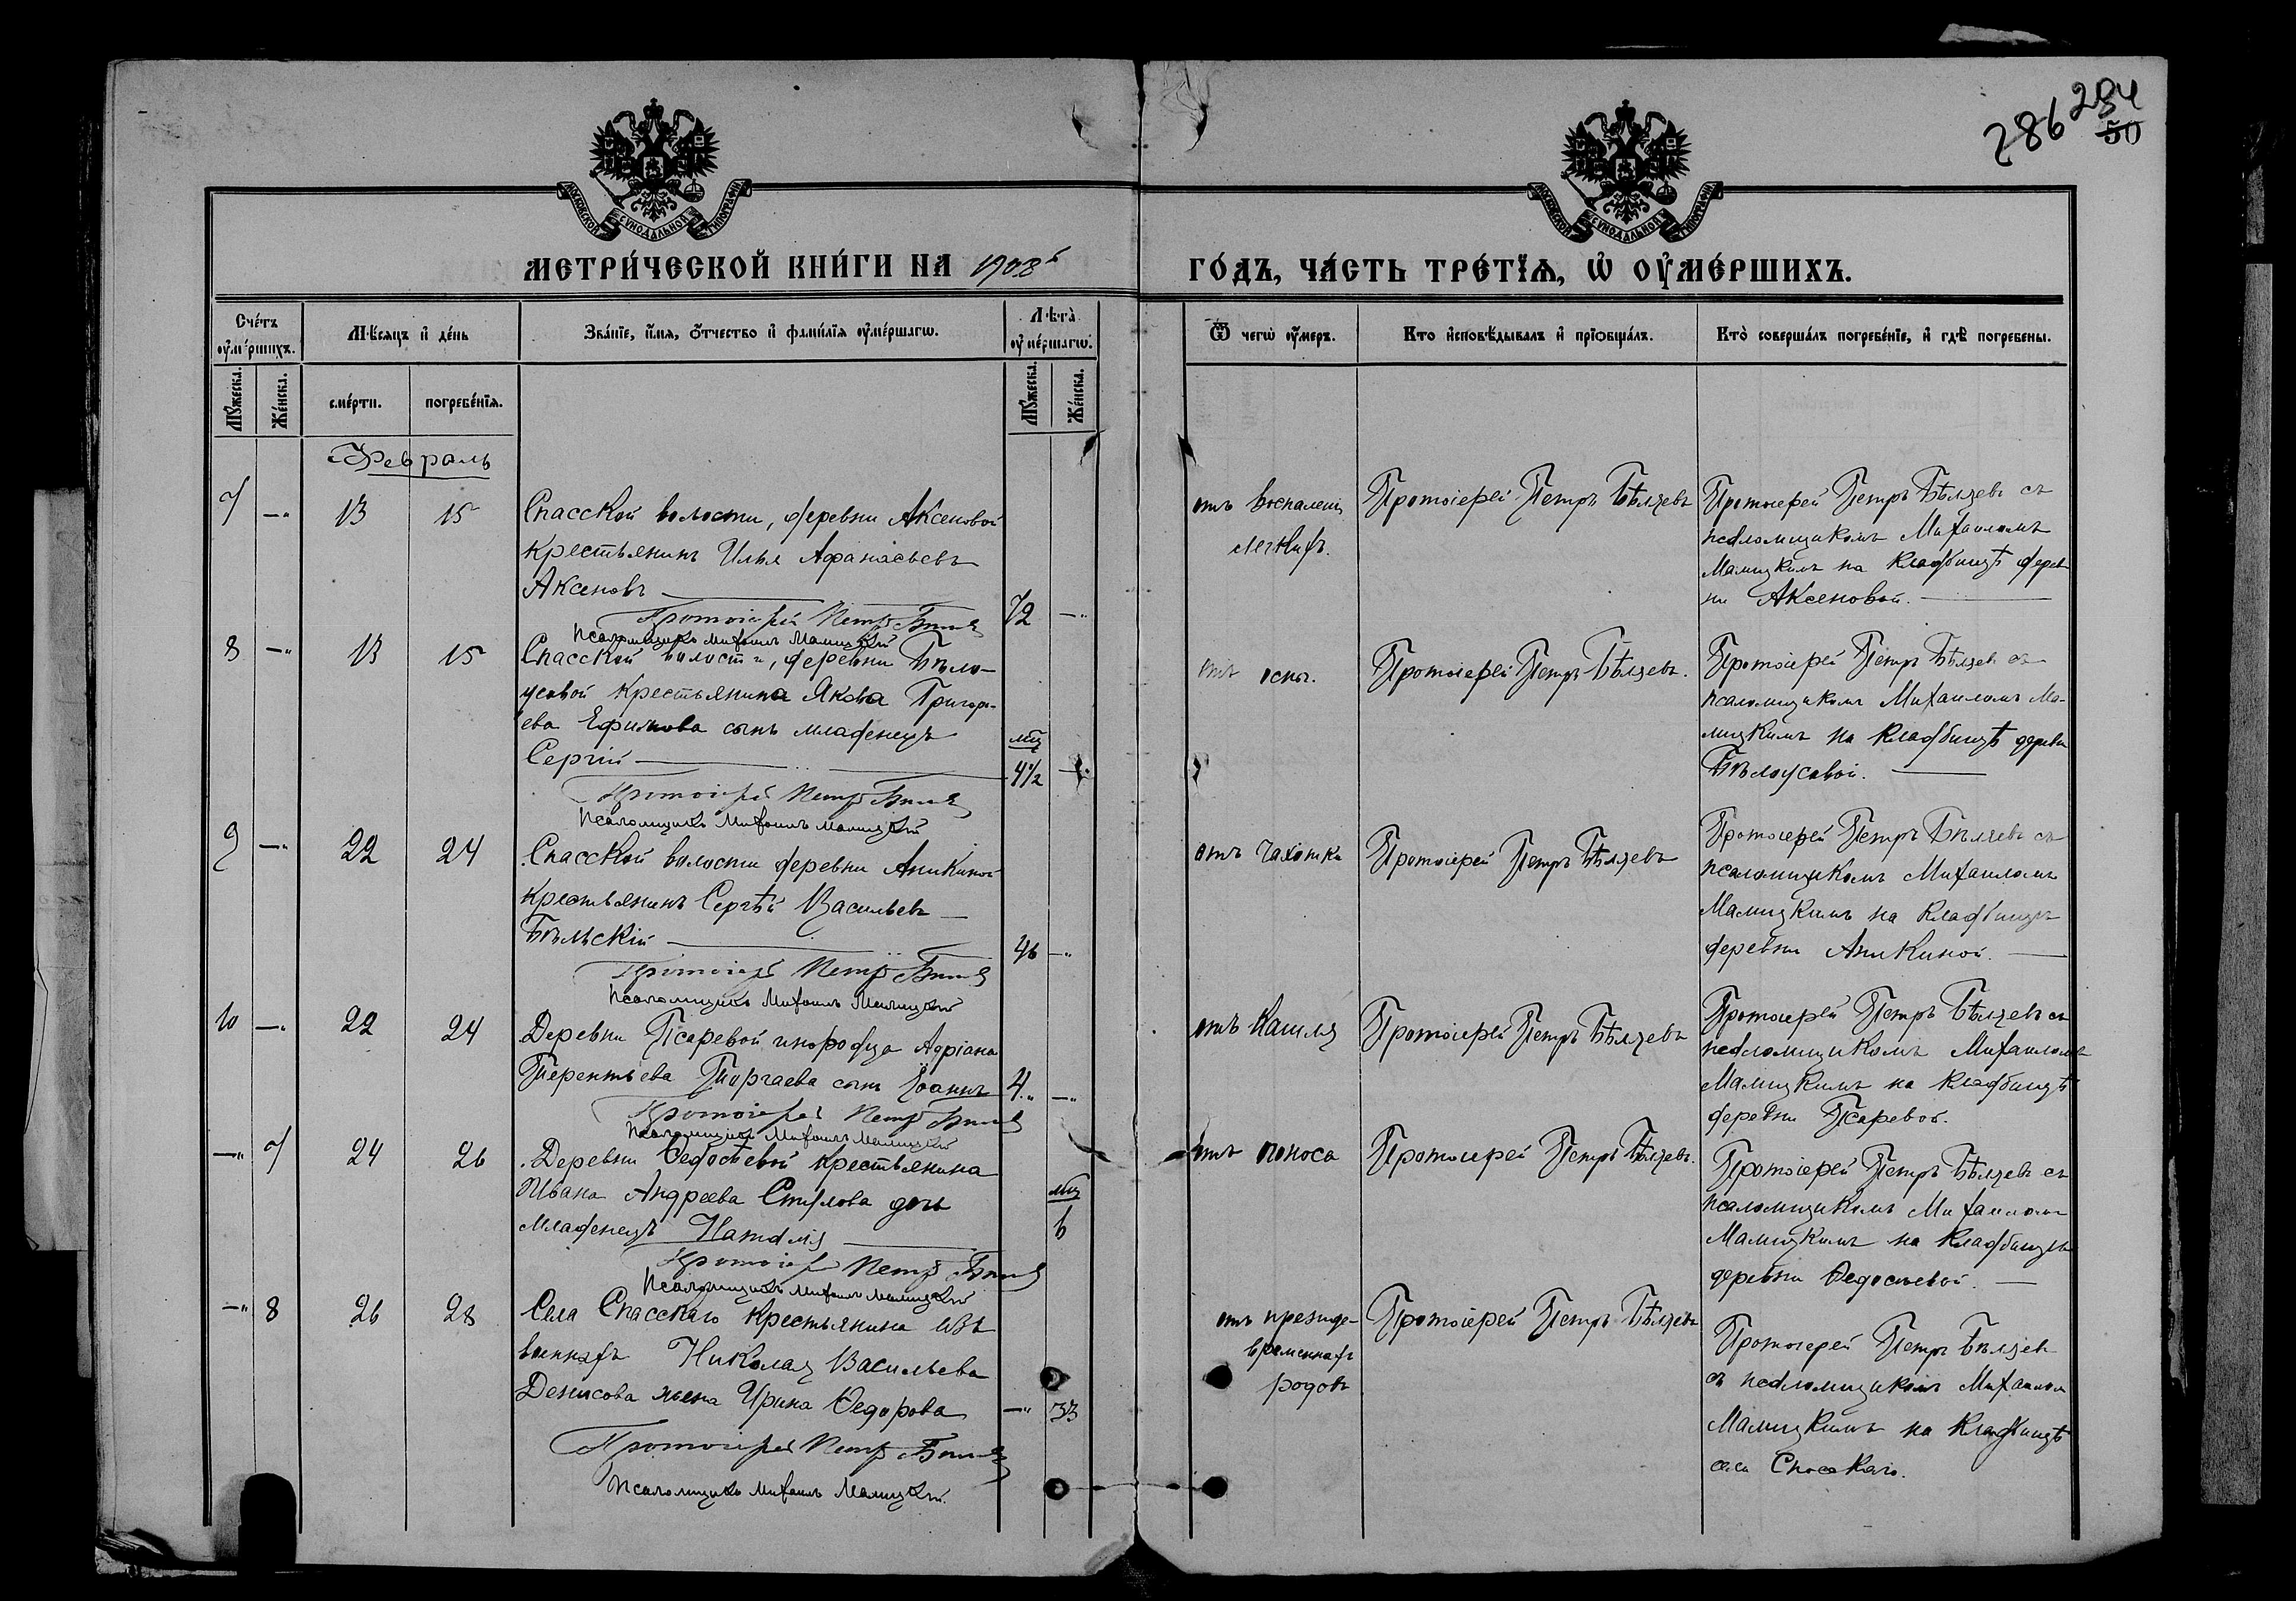 286 284
50
МОСКОВСКОЙ СѴНОДАЛЬНОЙ ТИПОГРАФІИ
МОСКОВСКОЙ СѴНОДАЛЬНОЙ ТИПОГРАФІИ
МЕТРИ́ЧЕСКОЙ КНИ́ГИ НА 1908й ГО́ДЪ, ЧА́СТЬ ТРЕ́ТЇѦ, Ѡ҆ ОУ҆МЕ́РШИХЪ.
Сче́тъ оу҆ме́ршихъ.
Мѣ́сѧцъ и҆ де́нь
Зва́нїе, и҆́мѧ, ѻ҆́тчество и҆ фами́лїѧ оу҆ме́ршагѡ.
Лѣ́та оу҆ме́ршагѡ.
Ѿ чегѡ̀ оу҆́меръ.
Кто̀ и҆сповѣ́дывалъ и҆ прїѻбща́лъ.
Кто̀ соверша́лъ погребе́нїе, и҆ гдѣ̀ погребены̀.
Мꙋ́жеска. Же́нска. сме́рти. погребе́нїѧ. Мꙋ́жеска. Же́нска.
Февраль
7 —„ 13 15 Спасской волости, деревни Аксеновой
крестьянинъ Илья Афанасьевъ
Аксеновъ — 72 —„
Протоіерей Петръ Бѣляевъ
Псаломщикъ Михаилъ Малицкій
отъ воспаленія
легкихъ.
Протоіерей Петръ Бѣляевъ
Протоіерей Петръ Бѣляевъ съ
псаломщикомъ Михаиломъ
Малицкимъ на кладбищѣ дерев
ни Аксеновой. —
8 —„ 13 15 Спасской волости, деревни Бѣло-
усовой крестьянина Якова Григорь-
ева Ефимова сынъ младенецъ
Сергій — мц 4½ —„
Протоіерей Петръ Бѣляевъ
Псаломщикъ Михаилъ Малицкій
отъ оспы.
Протоіерей Петръ Бѣляевъ.
Протоіерей Петръ Бѣляевъ съ
псаломщикомъ Михаиломъ Ма-
лицкимъ на кладбищѣ деревни
Бѣлоусовой. —
9 —„ 22 24 Спасской волости деревни Аникиной
крестьянинъ Сергѣй Васильевъ —
Бѣльскій — 46 —„
Протоіерей Петръ Бѣляевъ
Псаломщикъ Михаилъ Малицкій
отъ чахотки
Протоіерей Петръ Бѣляевъ
Протоіерей Петръ Бѣляевъ съ
псаломщикомъ Михаиломъ
Малицкимъ на кладбищѣ
деревни Аникиной. —
10 —„ 22 24 Деревни Псаревой инородца Адріана
Терентьева Торгаева сынъ Іоаннъ 4„ —„
Протоіерей Петръ Бѣляевъ
Псаломщикъ Михаилъ Малицкій
отъ кашля
Протоіерей Петръ Бѣляевъ
Протоіерей Петръ Бѣляевъ съ
псаломщикомъ Михаиломъ
Малицкимъ на кладбищѣ
деревни Псаревой.
—„ 7 24 26 Деревни Ѳедосѣевой крестьянина
Ивана Андреева дочь
младенецъ Наталія — мц 6
Протоіерей Петръ Бѣляевъ
Псаломщикъ Михаилъ Малицкій
отъ поноса
Протоіерей Петръ Бѣляевъ.
Протоіерей Петръ Бѣляевъ съ
псаломщикомъ Михаиломъ
Малицкимъ на кладбищѣ
деревни Ѳедосѣевой. —
—„ 8 26 28 Села Спасскаго крестьянина изъ
военныхъ Николая Васильева
Денисова жена Ирина Ѳедорова —„ 33
Протоіерей Петръ Бѣляевъ
Псаломщикъ Михаилъ Малицкій.
отъ прежде-
временныхъ
родовъ
Протоіерей Петръ Бѣляевъ
Протоіерей Петръ Бѣляевъ
съ псаломщикомъ Михаиломъ
Малицкимъ на кладбищѣ
села Спасскаго.